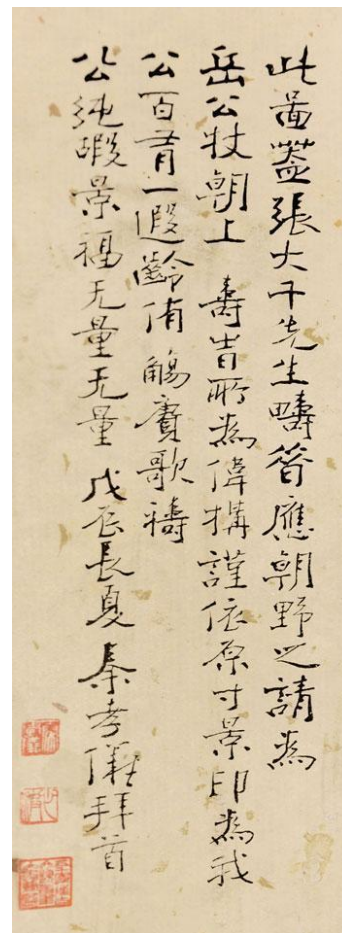 此啚蓋張大千先生疇昔應朝野之請為
岳公杖朝上 壽旹所為偉構謹依原寸景印為我
公百一遐齡侑觴賡歌禱
公純嘏景福无量无量 戊辰長夏 秦孝儀拜首